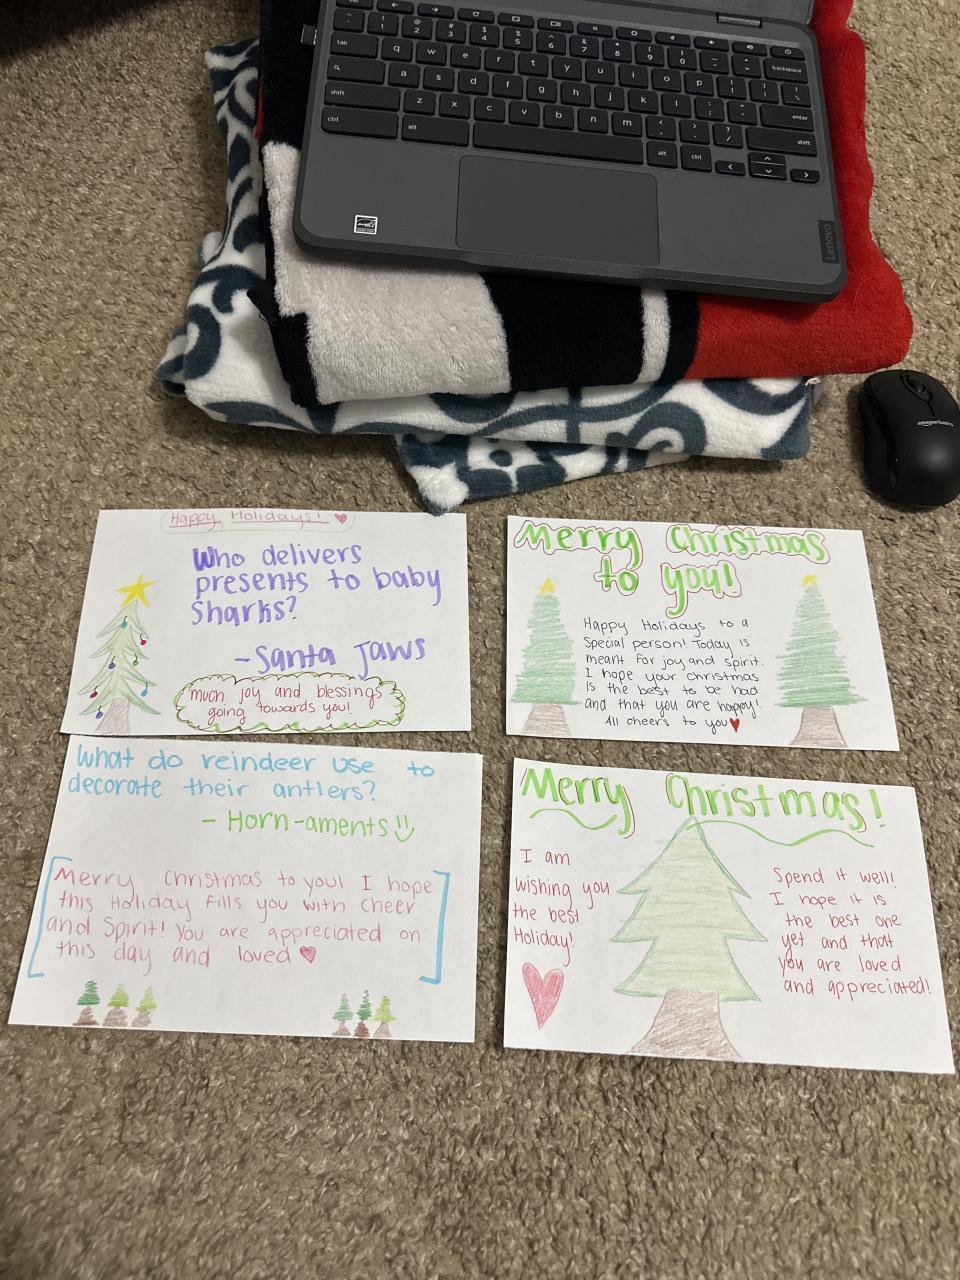 tab q w e r t y u i o p backspace
a s d f g h j k l enter
shift z x c v b n m shift
ctrl alt alt ctrl
Lenovo
amazonbasics
Happy Holidays!
Who delivers
presents to baby
Sharks?
-Santa Jaws
much joy and blessings
going towards you!
Merry Christmas
to you!
Happy Holidays to a
Special person! Today is
meant for joy and spirit.
I hope your christmas
is the best to be had
and that you are happy!
All cheers to you
What do reindeer use to
decorate their antlers?
- Horn-aments
Merry Christmas to you! I hope
this Holiday fills you with cheer
and Spirit! You are appreciated on
this day and loved
Merry Christmas!
I am
wishing you
the best
Holiday!
Spend it well!
I hope it is
the best one
yet and that
you are loved
and appreciated!